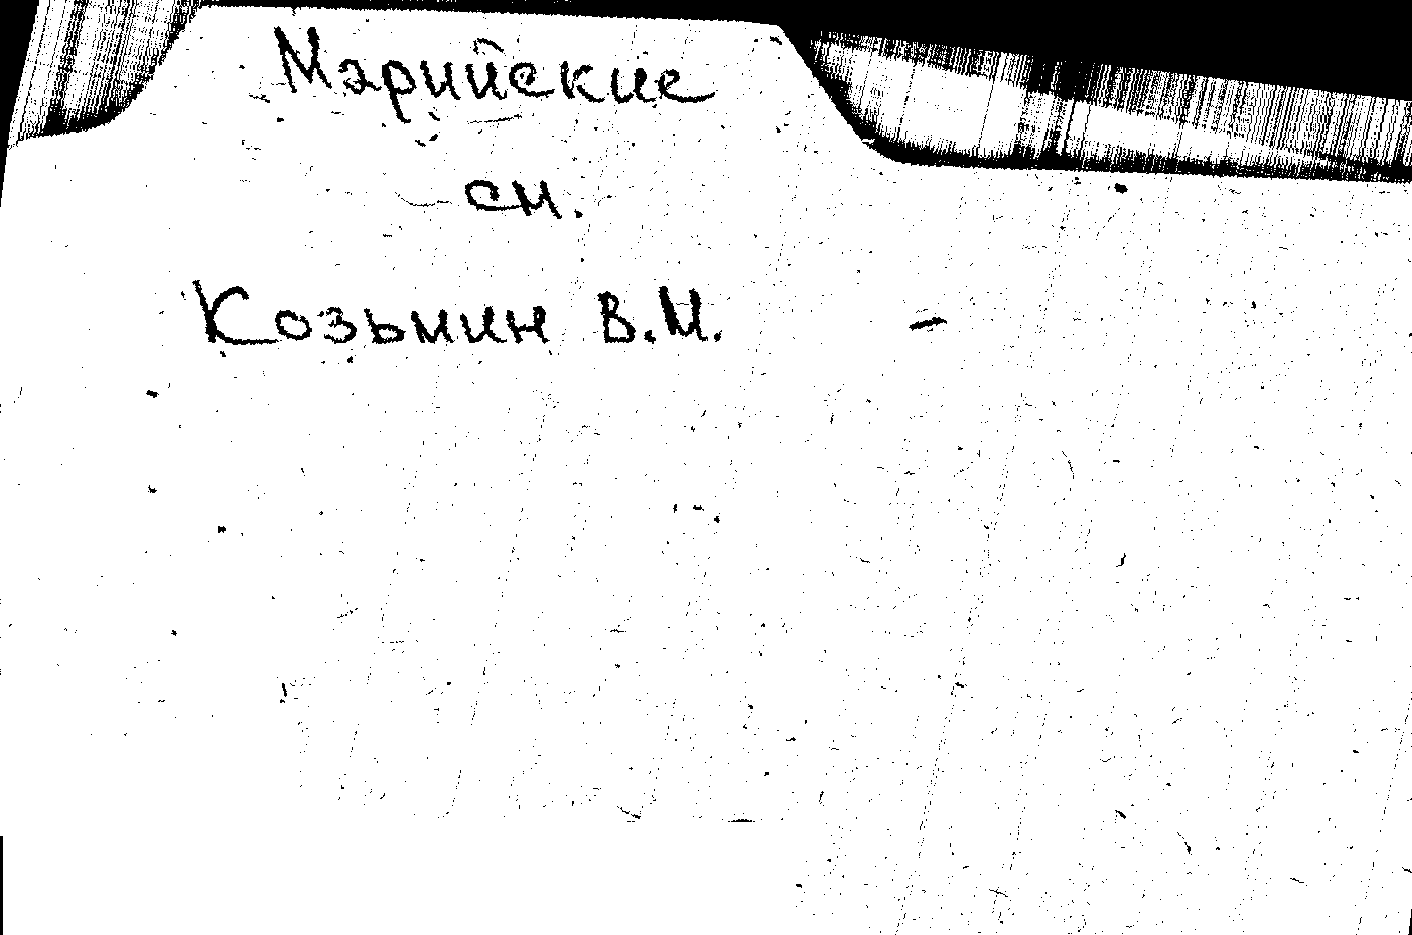 Марийские
см.
Козьмин В.М.